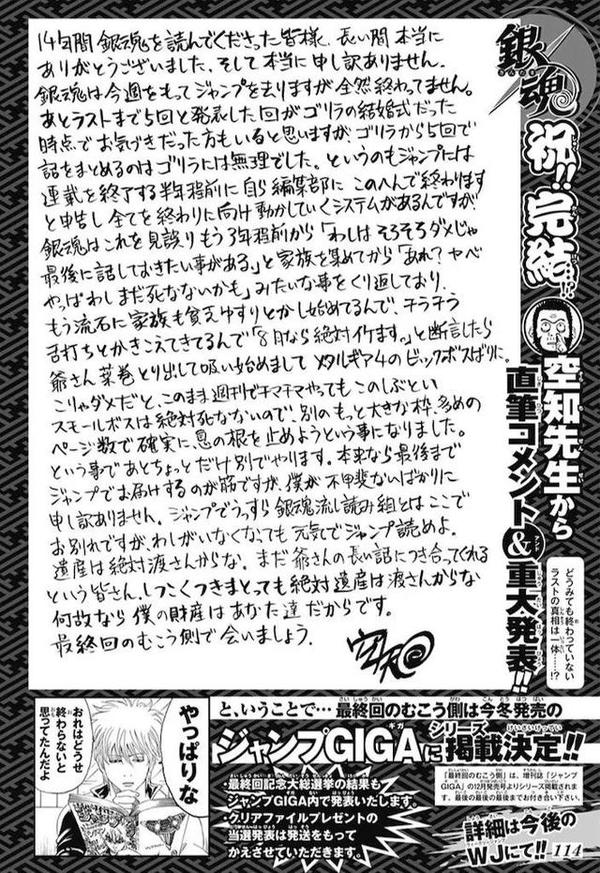 銀魂
祝!! 完結…!?
空知先生から
直筆コメント&重大発表!!
どうみても終わっていない
ラストの真相は一体……!?
14年間銀魂を読んでくださった皆様、長い間本当に
ありがとうございました、そして本当に申し訳ありません。
銀魂は今週をもってジャンプを去りますが全然終わってません。
あとラストまで5回と発表した回がゴリラの結婚式だった
時点でお気づきだった方もいると思いますがゴリラから5回で
話をまとめるのはゴリラには無理でした。というのもジャンプには
連載を終了する半年程前に自ら編集部に このへんで終わります
と申告し全てを終わりに向け動かしていくシステムがあるんですが
銀魂はこれを見誤りもう3年程前から「わしは そろそろダメじゃ
最後に話しておきたい事がある。」と家族を集めてから「あれ?ヤベ
やっぱわしまだ死なないかも」みたいな事をくり返しており、
もう流石に家族も貧乏ゆすりとかし始めてるんで、チラチラ
舌打ちとかきこえてきてるんで「8月なら絶対イケます。」と断言したら
爺さん葉巻とり出して吸い始めまして メタルギア4のビックボスばりに。
こりゃダメだと、このまま週刊でチマチマやってもこのしぶとい
スモールボスは絶対死なないので、別のもっと大きな枠、多めの
ページ数で確実に息の根を止めようという事になりました。
という事であとちょっとだけ別でやります。本来なら最後まで
ジャンプでお届けするのが筋ですが、僕が不甲斐ないばかりに
申し訳ありません。ジャンプでうっすら銀魂流し読み組とはここで
お別れですが、わしがいなくなっても元気でジャンプ読めよ。
遺産は絶対渡さんからな。まだ爺さんの長い話につき合ってくれる
という皆さん、しつこくつきまとっても絶対遺産は渡さんからな
何故なら僕の財産はあなた達だからです。
最終回のむこう側で会いましょう。
やっぱりな
おれはどうせ
終わらないと
思ってたんだよ
と、いうことで…最終回のむこう側は今冬発売の
ジャンプGIGAにシリーズ掲載決定!!
最終回記念大総選挙の結果も
ジャンプGIGA内で発表いたします。
クリアファイルプレゼントの
当選発表は発送をもって
かえさせていただきます。
「最終回のむこう側」は、増刊誌「ジャンプ
GIGA」の12月発売号よりシリーズ掲載されま
す。最後の最後の最後までお付き合い下さい。
詳細は今後の
WJにて!!
114